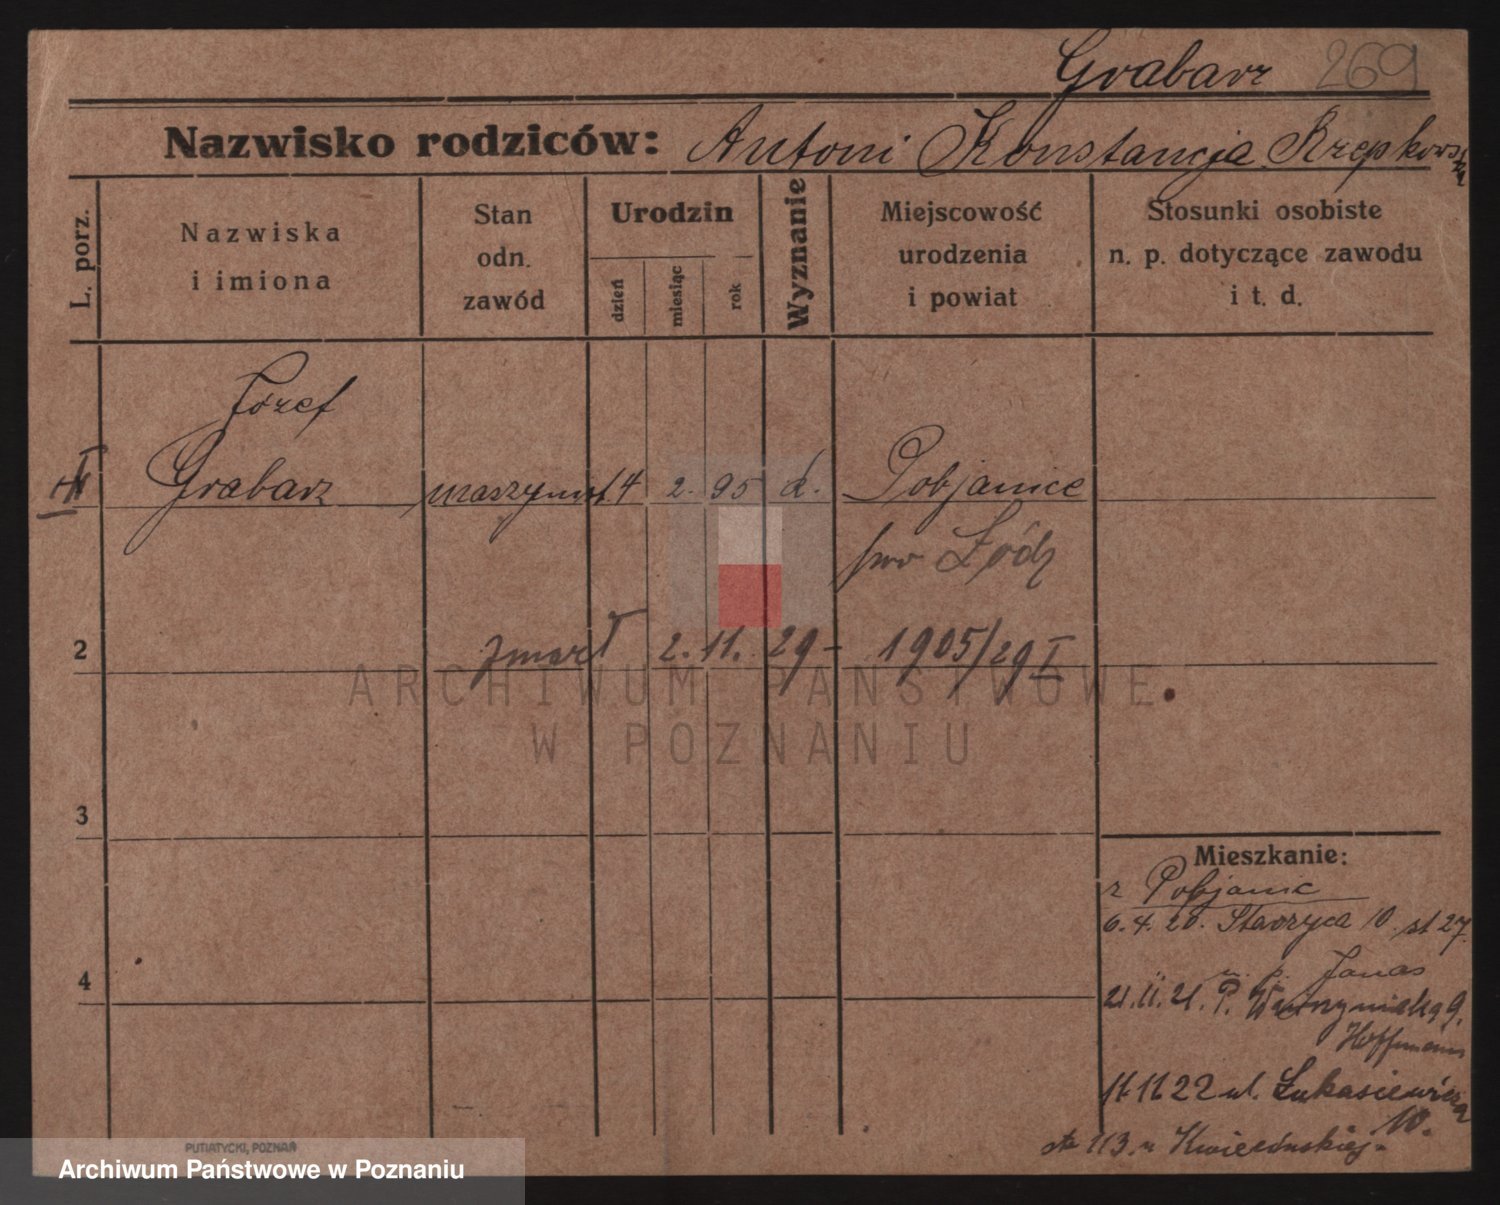 Grabarz 269
Nazwisko rodziców: Antoni Konstancja Rzepkowska
L. porz.
Nazwiska
i imiona
Stan
odn.
zawód
Urodzin
dzień
miesiąc
rok
Wyznanie
Miejscowość
urodzenia
i powiat
Stosunki osobiste
n. p. dotyczące zawodu
i t. d.
Józef
Grabarz maszynist. 14 2. 95 d. Pobjanice
pow Łódz
2 zmarł 2. 11. 29 - 1905/29 I
ARCHIWUM PAŃSTWOWE
W POZNANIU
3
Mieszkanie:
z Pobjanic
6.4.20. 10. st 27.
4
u. p. Janas
21.11.21. P. Wawrzyniaka 9.
Hoffmann
11.11 22 ul. Łukasiewicza
10.
113. u Kwiecińskiej.
PUTIATYCKI, POZNAŃ
Archiwum Państwowe w Poznaniu